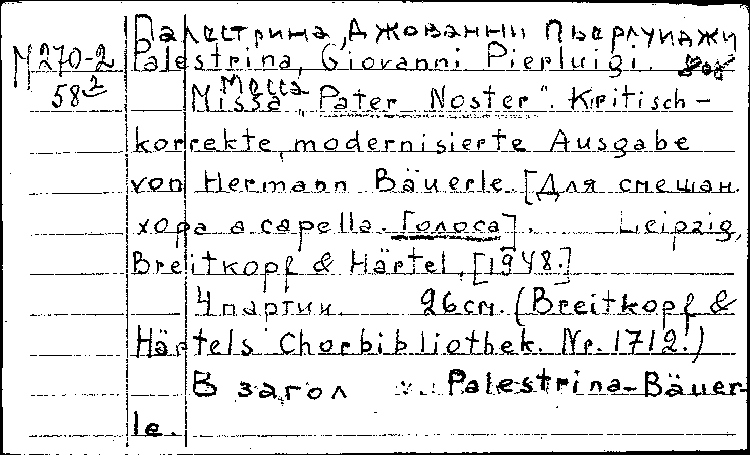 Палестрина, Джованни Пьерлуиджи
М 270-2 Palestrina, Giovanni Pierluigi.
58² Месса
Missa „Pater Noster“. Kritisch-
korrekte, modernisierte Ausgabe
von Hermann Bäuerle. [Для смешан.
хора a capella. Голоса]. Leipzig,
Breitkopf & Härtel, [1948.]
4 партии. 26 см. (Breitkopf &
Härtels Chorbibliothek. Nr. 1712.)
В загол Palestrina-Bäuer-
le.